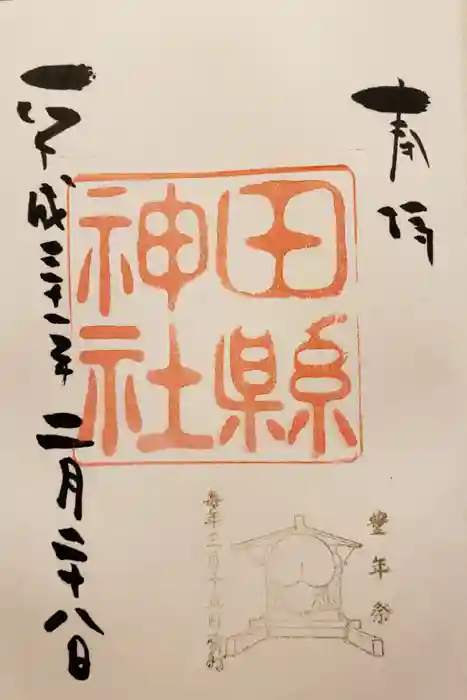 奉拝
田縣神社
豊年祭
毎年三月十五日
平成三十一年二月二十八日